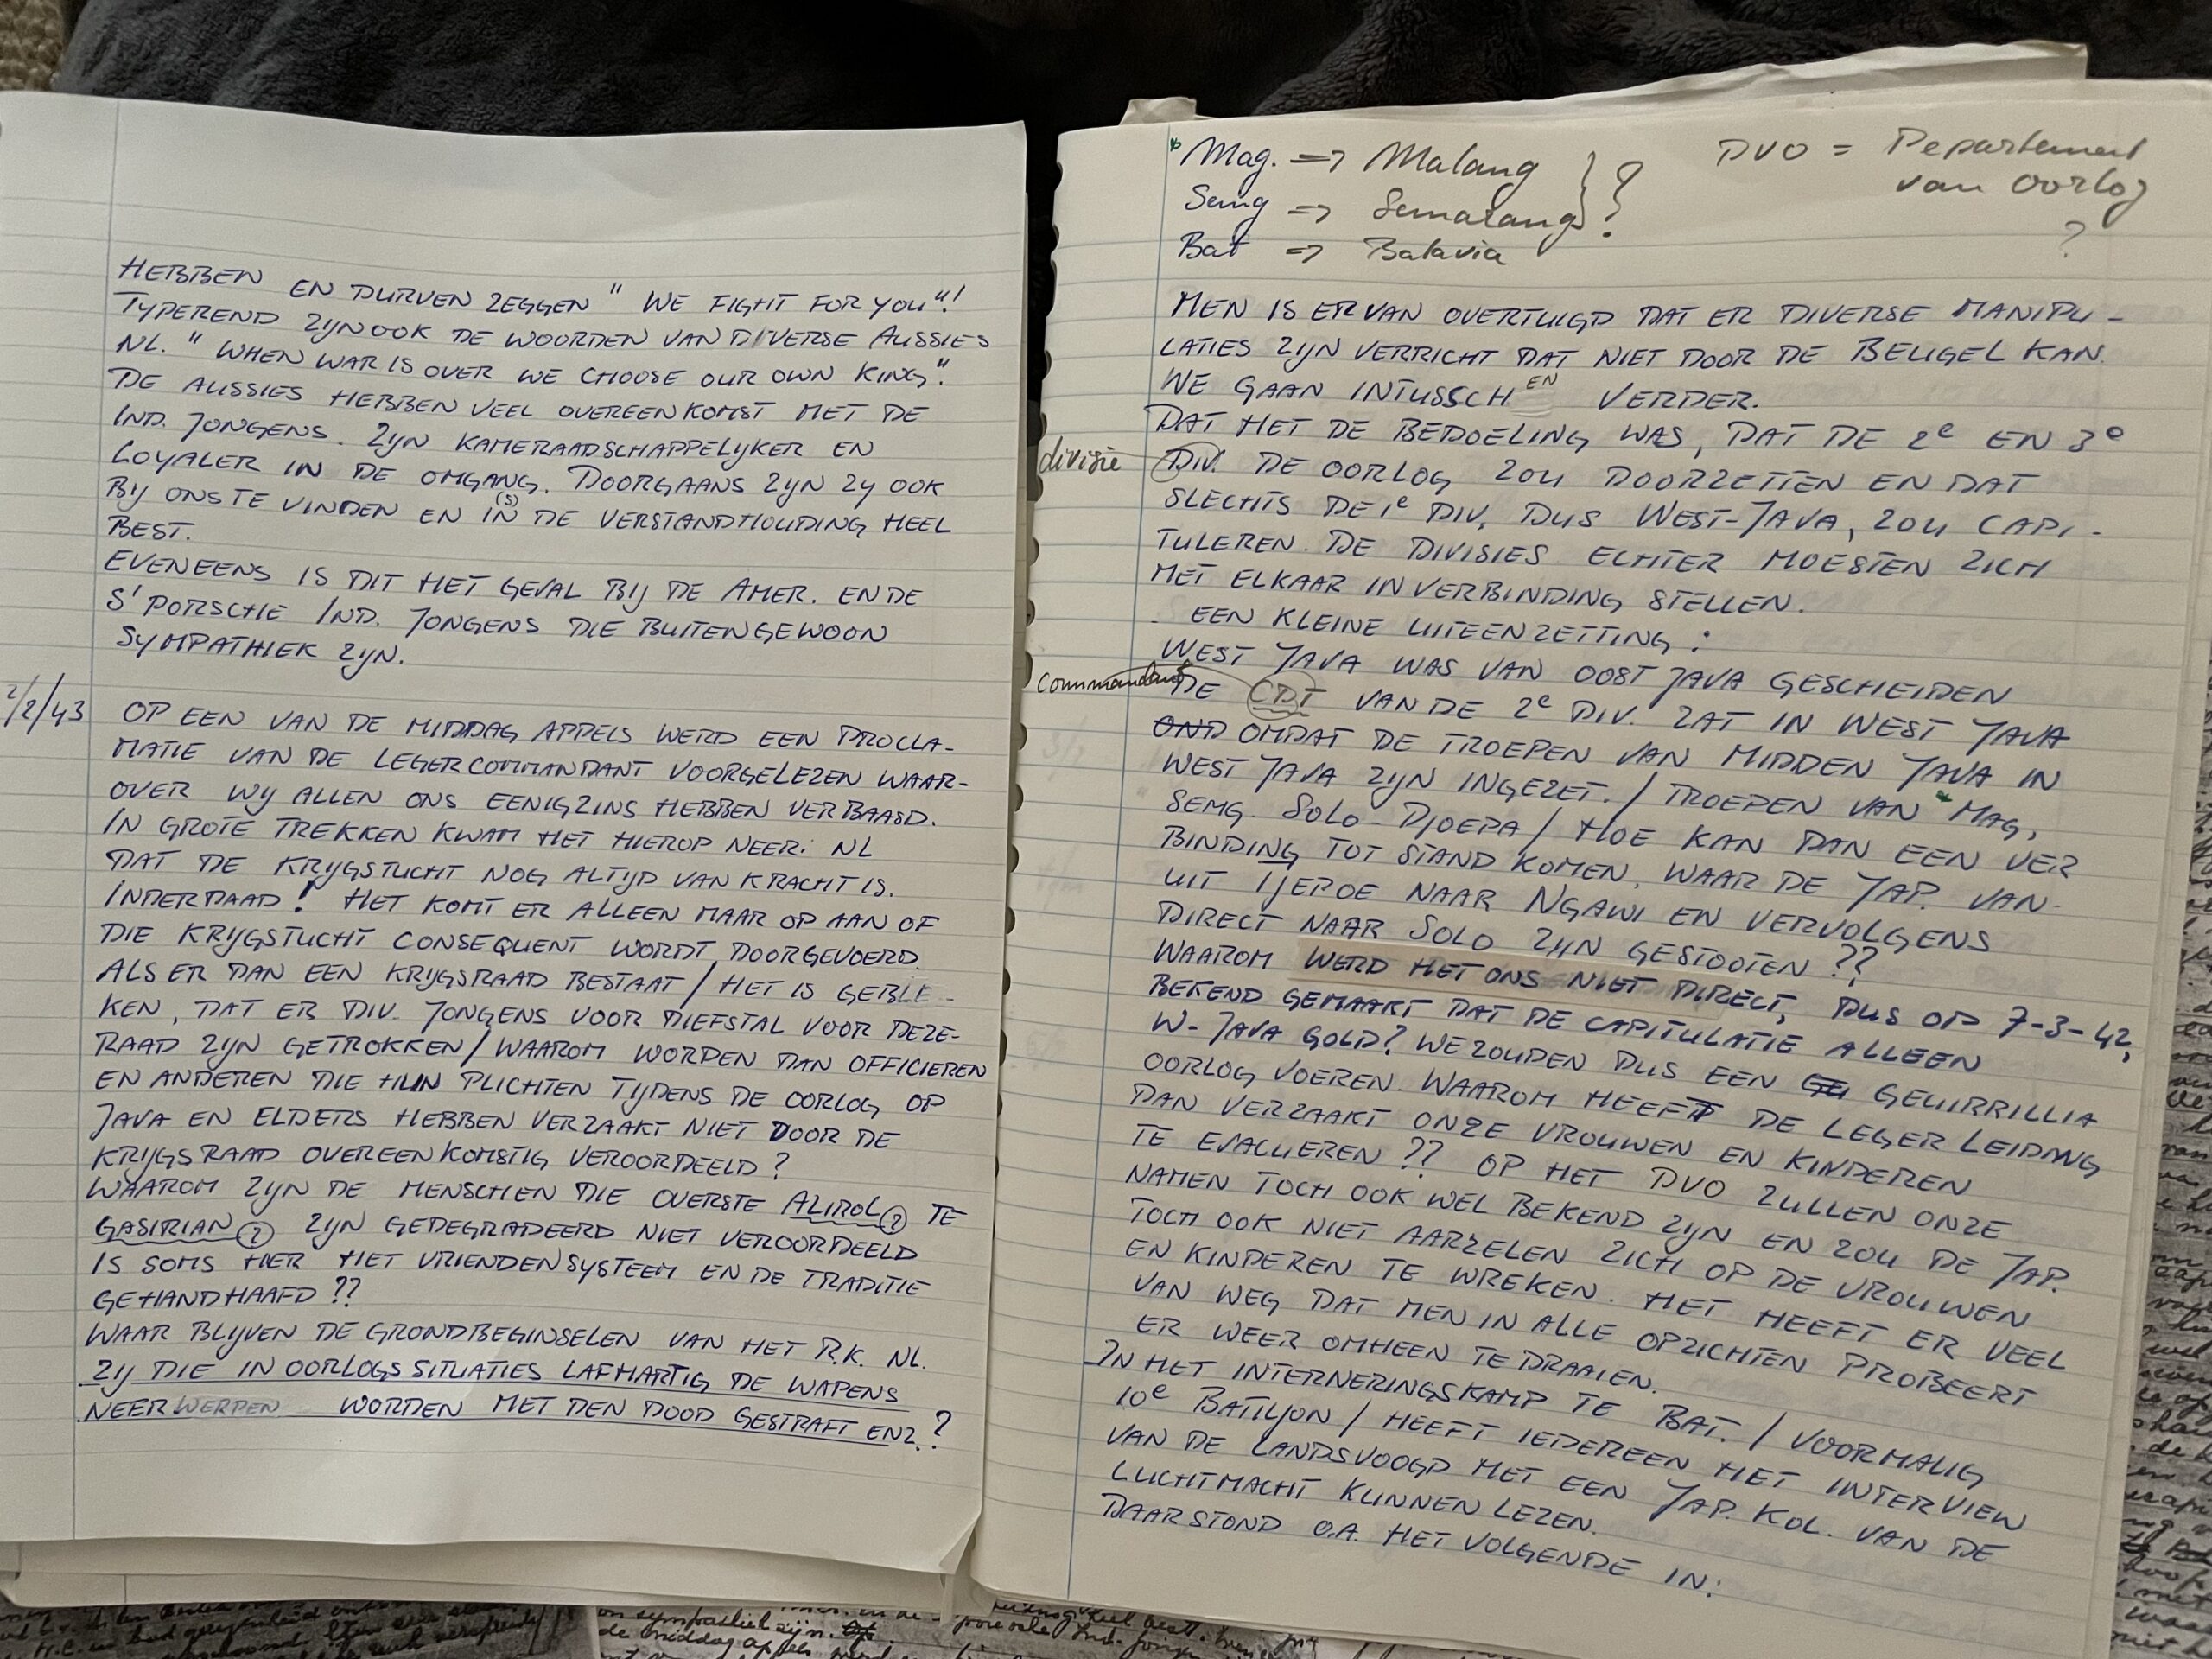 HEBBEN EN DURVEN ZEGGEN " WE FIGHT FOR YOU"!
TYPEREND ZIJN OOK DE WOORDEN VAN DIVERSE AUSSIES
NL. " WHEN WAR IS OVER WE CHOOSE OUR OWN KING".
DE AUSSIES HEBBEN VEEL OVEREENKOMST MET DE
IND. JONGENS. ZIJN KAMERAADSCHAPPELIJKER EN
LOYALER IN DE OMGANG. DOORGAANS ZIJN ZY OOK
BIJ ONS TE VINDEN EN IN (S) DE VERSTANDHOUDING HEEL
BEST.
EVENEENS IS DIT HET GEVAL BIJ DE AMER. EN DE
S'PORSCHE IND. JONGENS DIE BUITENGEWOON
SYMPATHIEK ZIJN.
2/2/43 OP EEN VAN DE MIDDAG APPELS WERD EEN PROCLA-
MATIE VAN DE LEGERCOMMANDANT VOORGELEZEN WAAR-
OVER WIJ ALLEN ONS EENIGZINS HEBBEN VERBAASD.
IN GROTE TREKKEN KWAM HET HIEROP NEER: NL
DAT DE KRIJGSTUCHT NOG ALTIJD VAN KRACHT IS.
INDERDAAD! HET KOMT ER ALLEEN MAAR OP AAN OF
DIE KRIJGSTUCHT CONSEQUENT WORDT DOORGEVOERD.
ALS ER DAN EEN KRIJGSRAAD BESTAAT / HET IS GEBLE-
KEN, DAT ER DIV. JONGENS VOOR DIEFSTAL VOOR DEZE-
RAAD ZIJN GETROKKEN / WAAROM WORDEN DAN OFFICIEREN
EN ANDEREN DIE HUN PLICHTEN TIJDENS DE OORLOG OP
JAVA EN ELDERS HEBBEN VERZAAKT NIET DOOR DE
KRIJGSRAAD OVEREENKOMSTIG VEROORDEELD?
WAAROM ZIJN DE MENSCHEN DIE OVERSTE ALIROL (?) TE
GASIRIAN (?) ZIJN GEDEGRADEERD NIET VEROORDEELD
IS SOMS HIER HET VRIENDENSYSTEEM EN DE TRADITIE
GEHANDHAAFD ??
WAAR BLIJVEN DE GRONDBEGINSELEN VAN HET R.K. NL.
ZIJ DIE IN OORLOGSSITUATIES LAFHARTIG DE WAPENS
NEERWERPEN WORDEN MET DEN DOOD GESTRAFT ENZ.?
Mag. => Malang } ?
Semg => Semarang
Bat => Batavia
DVO = Departement
van Oorlog
?
MEN IS ERVAN OVERTUIGD DAT ER DIVERSE MANIPU-
LATIES ZIJN VERRICHT DAT NIET DOOR DE BEUGEL KAN.
WE GAAN INTUSSCHEN VERDER.
DAT HET DE BEDOELING WAS, DAT DE 2e EN 3e
divisie DIV. DE OORLOG ZOU DOORZETTEN EN DAT
SLECHTS DE 1e DIV, DUS WEST-JAVA, ZOU CAPI-
TULEREN. DE DIVISIES ECHTER MOESTEN ZICH
MET ELKAAR IN VERBINDING STELLEN.
EEN KLEINE UITEENZETTING :
WEST JAVA WAS VAN OOST JAVA GESCHEIDEN
commandant DE CDT VAN DE 2e DIV. ZAT IN WEST JAVA
OND OMDAT DE TROEPEN VAN MIDDEN JAVA IN
WEST JAVA ZIJN INGEZET. / TROEPEN VAN MAG,
SEMG. SOLO - DJOEPA / HOE KAN DAN EEN VER
BINDING TOT STAND KOMEN, WAAR DE JAP. VAN-
UIT TJEPOE NAAR NGAWI EN VERVOLGENS
DIRECT NAAR SOLO ZIJN GESTOOTEN ??
WAAROM WERD HET ONS NIET DIRECT, DUS OP 7-3-42,
BEKEND GEMAAKT DAT DE CAPITULATIE ALLEEN
W-JAVA GOLD? WE ZOUDEN DUS EEN GE GEUIRRILLIA
OORLOG VOEREN. WAAROM HEEFT DE LEGER LEIDING
DAN VERZAAKT ONZE VROUWEN EN KINDEREN
TE EVACUEREN ?? OP HET DVO ZULLEN ONZE
NAMEN TOCH OOK WEL BEKEND ZIJN EN ZOU DE JAP.
TOCH OOK NIET AARZELEN ZICH OP DE VROUWEN
EN KINDEREN TE WREKEN. HET HEEFT ER VEEL
VAN WEG DAT MEN IN ALLE OPZICHTEN PROBEERT
ER WEER OMHEEN TE DRAAIEN.
IN HET INTERNERINGSKAMP TE BAT. / VOORMALIG
10e BATILJON / HEEFT IEDEREEN HET INTERVIEW
VAN DE LANDSVOOGD MET EEN JAP. KOL. VAN DE
LUCHTMACHT KUNNEN LEZEN.
DAAR STOND O.A. HET VOLGENDE IN: